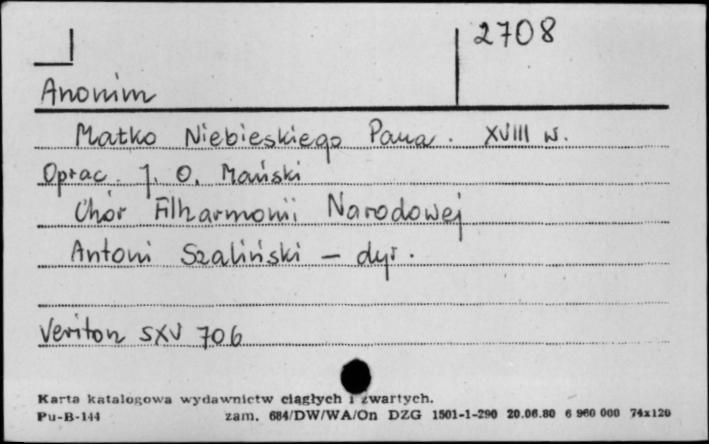 2708
Anonim
Matko Niebieskiego Pana. XVIII w.
Oprac. J. O. Mański
Chór Filharmonii Narodowej
Antoni Szaliński – dyr.
Veriton SXV 706
Karta katalogowa wydawnictw ciągłych i zwartych.
Pu-B-144 zam. 684/DW/WA/On DZG 1501-1-290 20.06.80 6 960 000 74x120